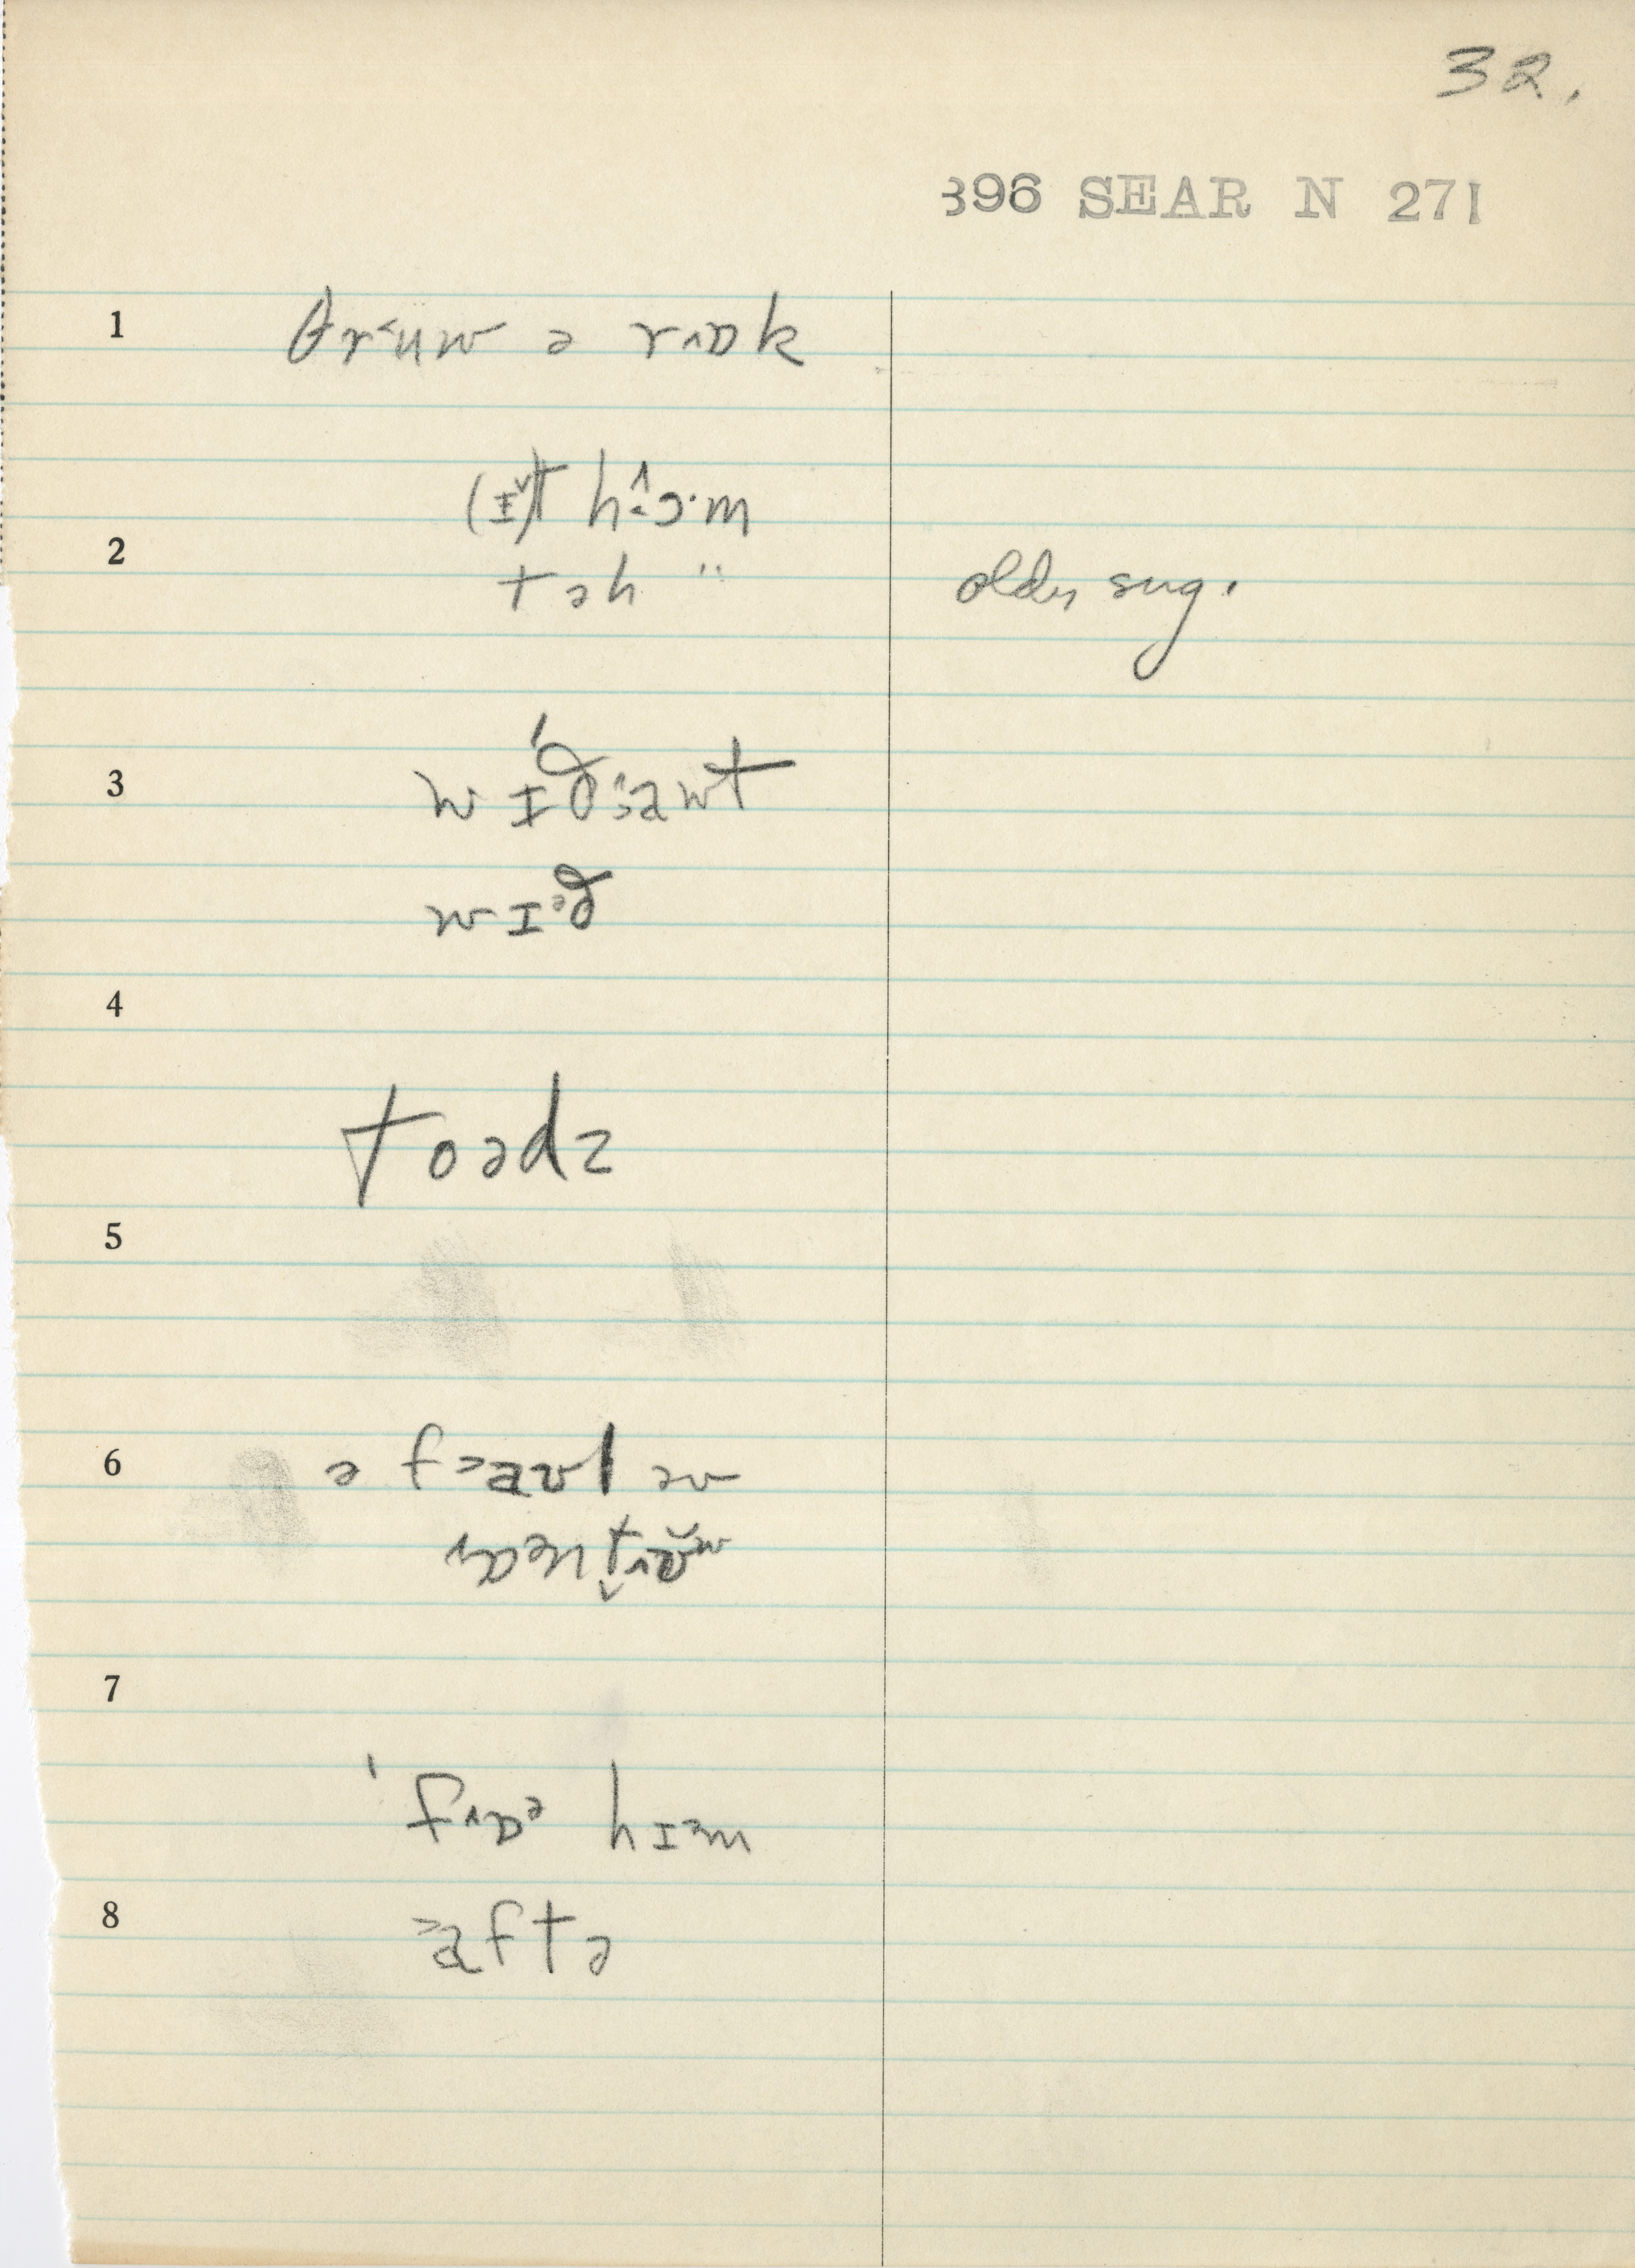 32.
396 SEAR N 271
1 θr˂uw ə rʌɒk
(ɪ˅)t h ɔ·m
2 təh " older sug.
3 wɪðawt
wɪᵊð
4
toədz
5
6 ə f˃aʊl əv
7
ˈfʌɒᵊ hɪᵊm
8 ˃aftə